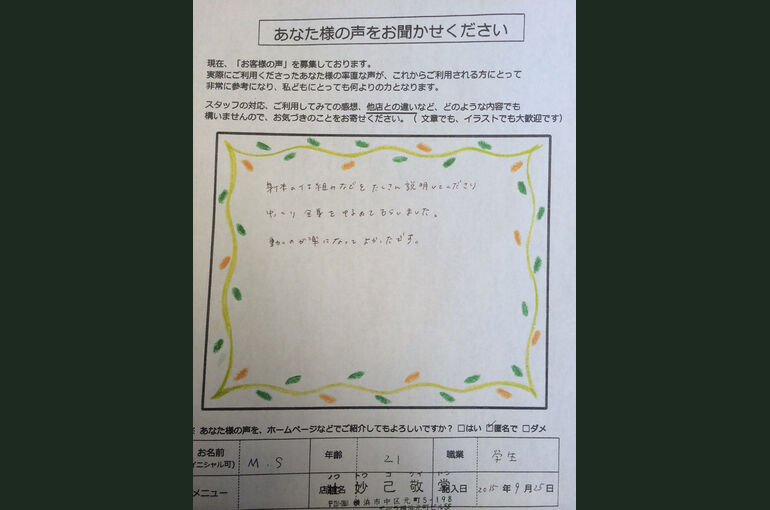 あなた様の声をお聞かせください
現在、「お客様の声」を募集しております。
実際にご利用くださったあなた様の率直な声が、これからご利用される方にとって
非常に参考になり、私どもにとっても何よりの力となります。
スタッフの対応、ご利用してみての感想、他店との違いなど、どのような内容でも
構いませんので、お気づきのことをお寄せください。(文章でも、イラストでも大歓迎です)
身体の仕組みなどをたくさん説明してくださり
ゆっくり全身をゆるめてもらいました。
動くのが楽になってよかったです。
あなた様の声を、ホームページなどでご紹介してもよろしいですか? □はい ☑匿名で □ダメ
お名前 年齢 職業
イニシャル可) M.S 21 学生
メニュー 店舗名 妙己敬堂 記入日 2015年9月25日
横浜市中区元町5-198